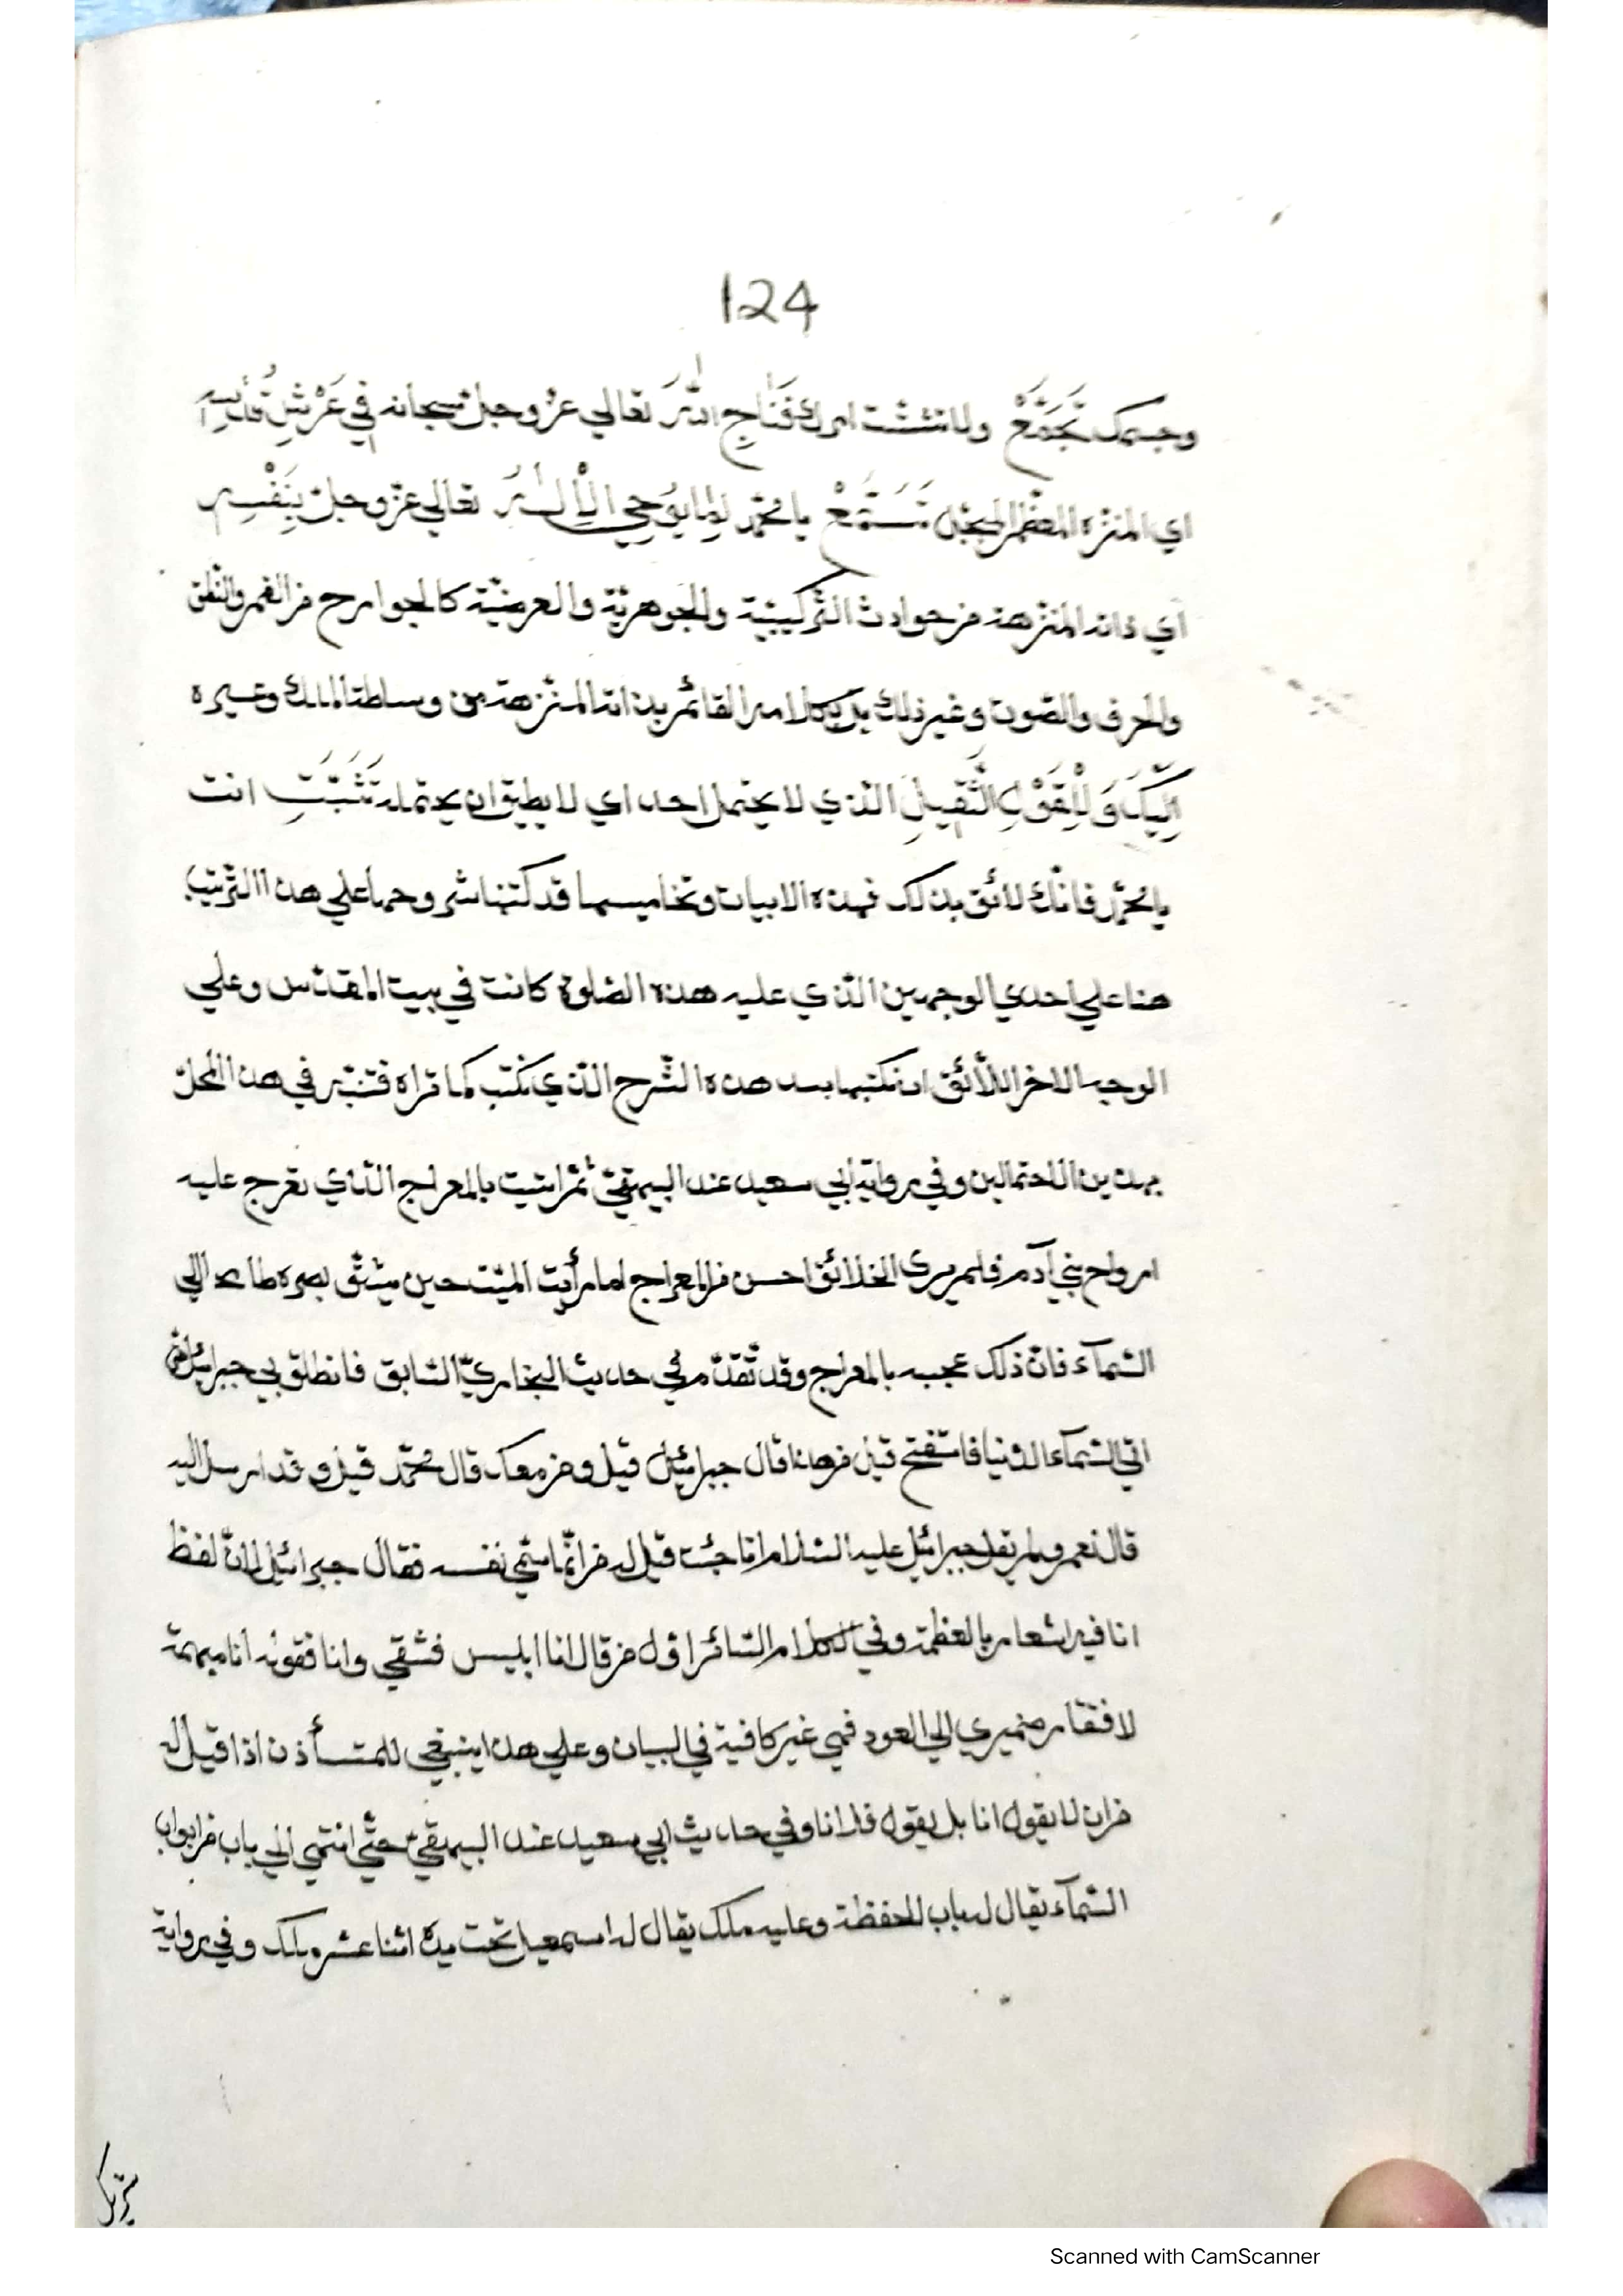 124
وجسمك تَجَمَّعْ ولا تتشتت امرك فَنَاجِ اللّٰهَ تعالي عزّ وجلّ سبحانه في عَرْشِ قُدْسِهِ
اي المنزّه المعظّم المبجّل تَسَمَّعْ يا محمّد لِمَا يُوْحِي الْإِلٰهُ تعالي عزّ وجلّ بِنَفْسِهِ
اي ذاته المنزّهة من حوادث التّركيبيّة والجوهريّة والعرضيّة كالجوارح من الفم والنّطق
والحرف والصّوت وغير ذلك بل بكلامه القائم بذاته المنزّهة من وساطة الملك وغيره
اِلَيْكَ وَلِلْقَوْلِ الثَّقِيْلِ الّذي لا يحتمل احد اي لا يطيق ان يحتمله تَثَبَّتِ انت
يا محمّد فانّك لائق بذلك فهذه الابيات وتخاميسها قد كتبنا شروحها علي هذا التّرتيب
هنا علي احدي الوجهين الّذي عليه هذه الصّلوة كانت في بيت المقدّس وعلي
الوجه الاخر اللّائق ان نكتبها بعد هذه الشّرح الّذي نكتب كما تراه فتنبّه في هذا المحلّ
بهذين الاحتمالين وفي رواية ابي سعيد عند البيهقيّ ثمّ اتيت بالمعراج الّذي تعرج عليه
ارواح بني آدم فلم يري الخلائق احسن من المعراج اما رأيت الميّت حين يشقّ بصره طامحا الي
السّمآء فانّ ذلك عجبه بالمعراج وقد تقدّم في حديث البخاريّ السّابق فانطلق بي جبرائيل حتّي
اتي السّمآء الدّنيا فاستفتح قيل من هذا قال جبرائيل قيل ومن معك قال محمّد قيل وقد ارسل اليه
قال نعم ولم يقل جبرائيل عليه السّلام انا حيث قيل له من انّما سمّي نفسه فقال جبرائيل لانّ لفظ
انا فيه اشعار بالعظمة وفي الكلام السّائر اوّل من قال انا ابليس فشقي وانا فقوله انا مبهمة
لافتقار ضميري الي العود فهي غير كافية في البيان وعلي هذا ينبغي للمستأذن اذا قيل له
من ان لا يقول انا بل يقول فلانا وفي حديث ابي سعيد عند البيهقيّ حتّي انتهي الي باب من ابواب
السّمآء يقال له باب الحفظة وعليه ملك يقال له اسمعيل تحت يده اثنا عشر ملك وفي رواية
شريك
Scanned with CamScanner